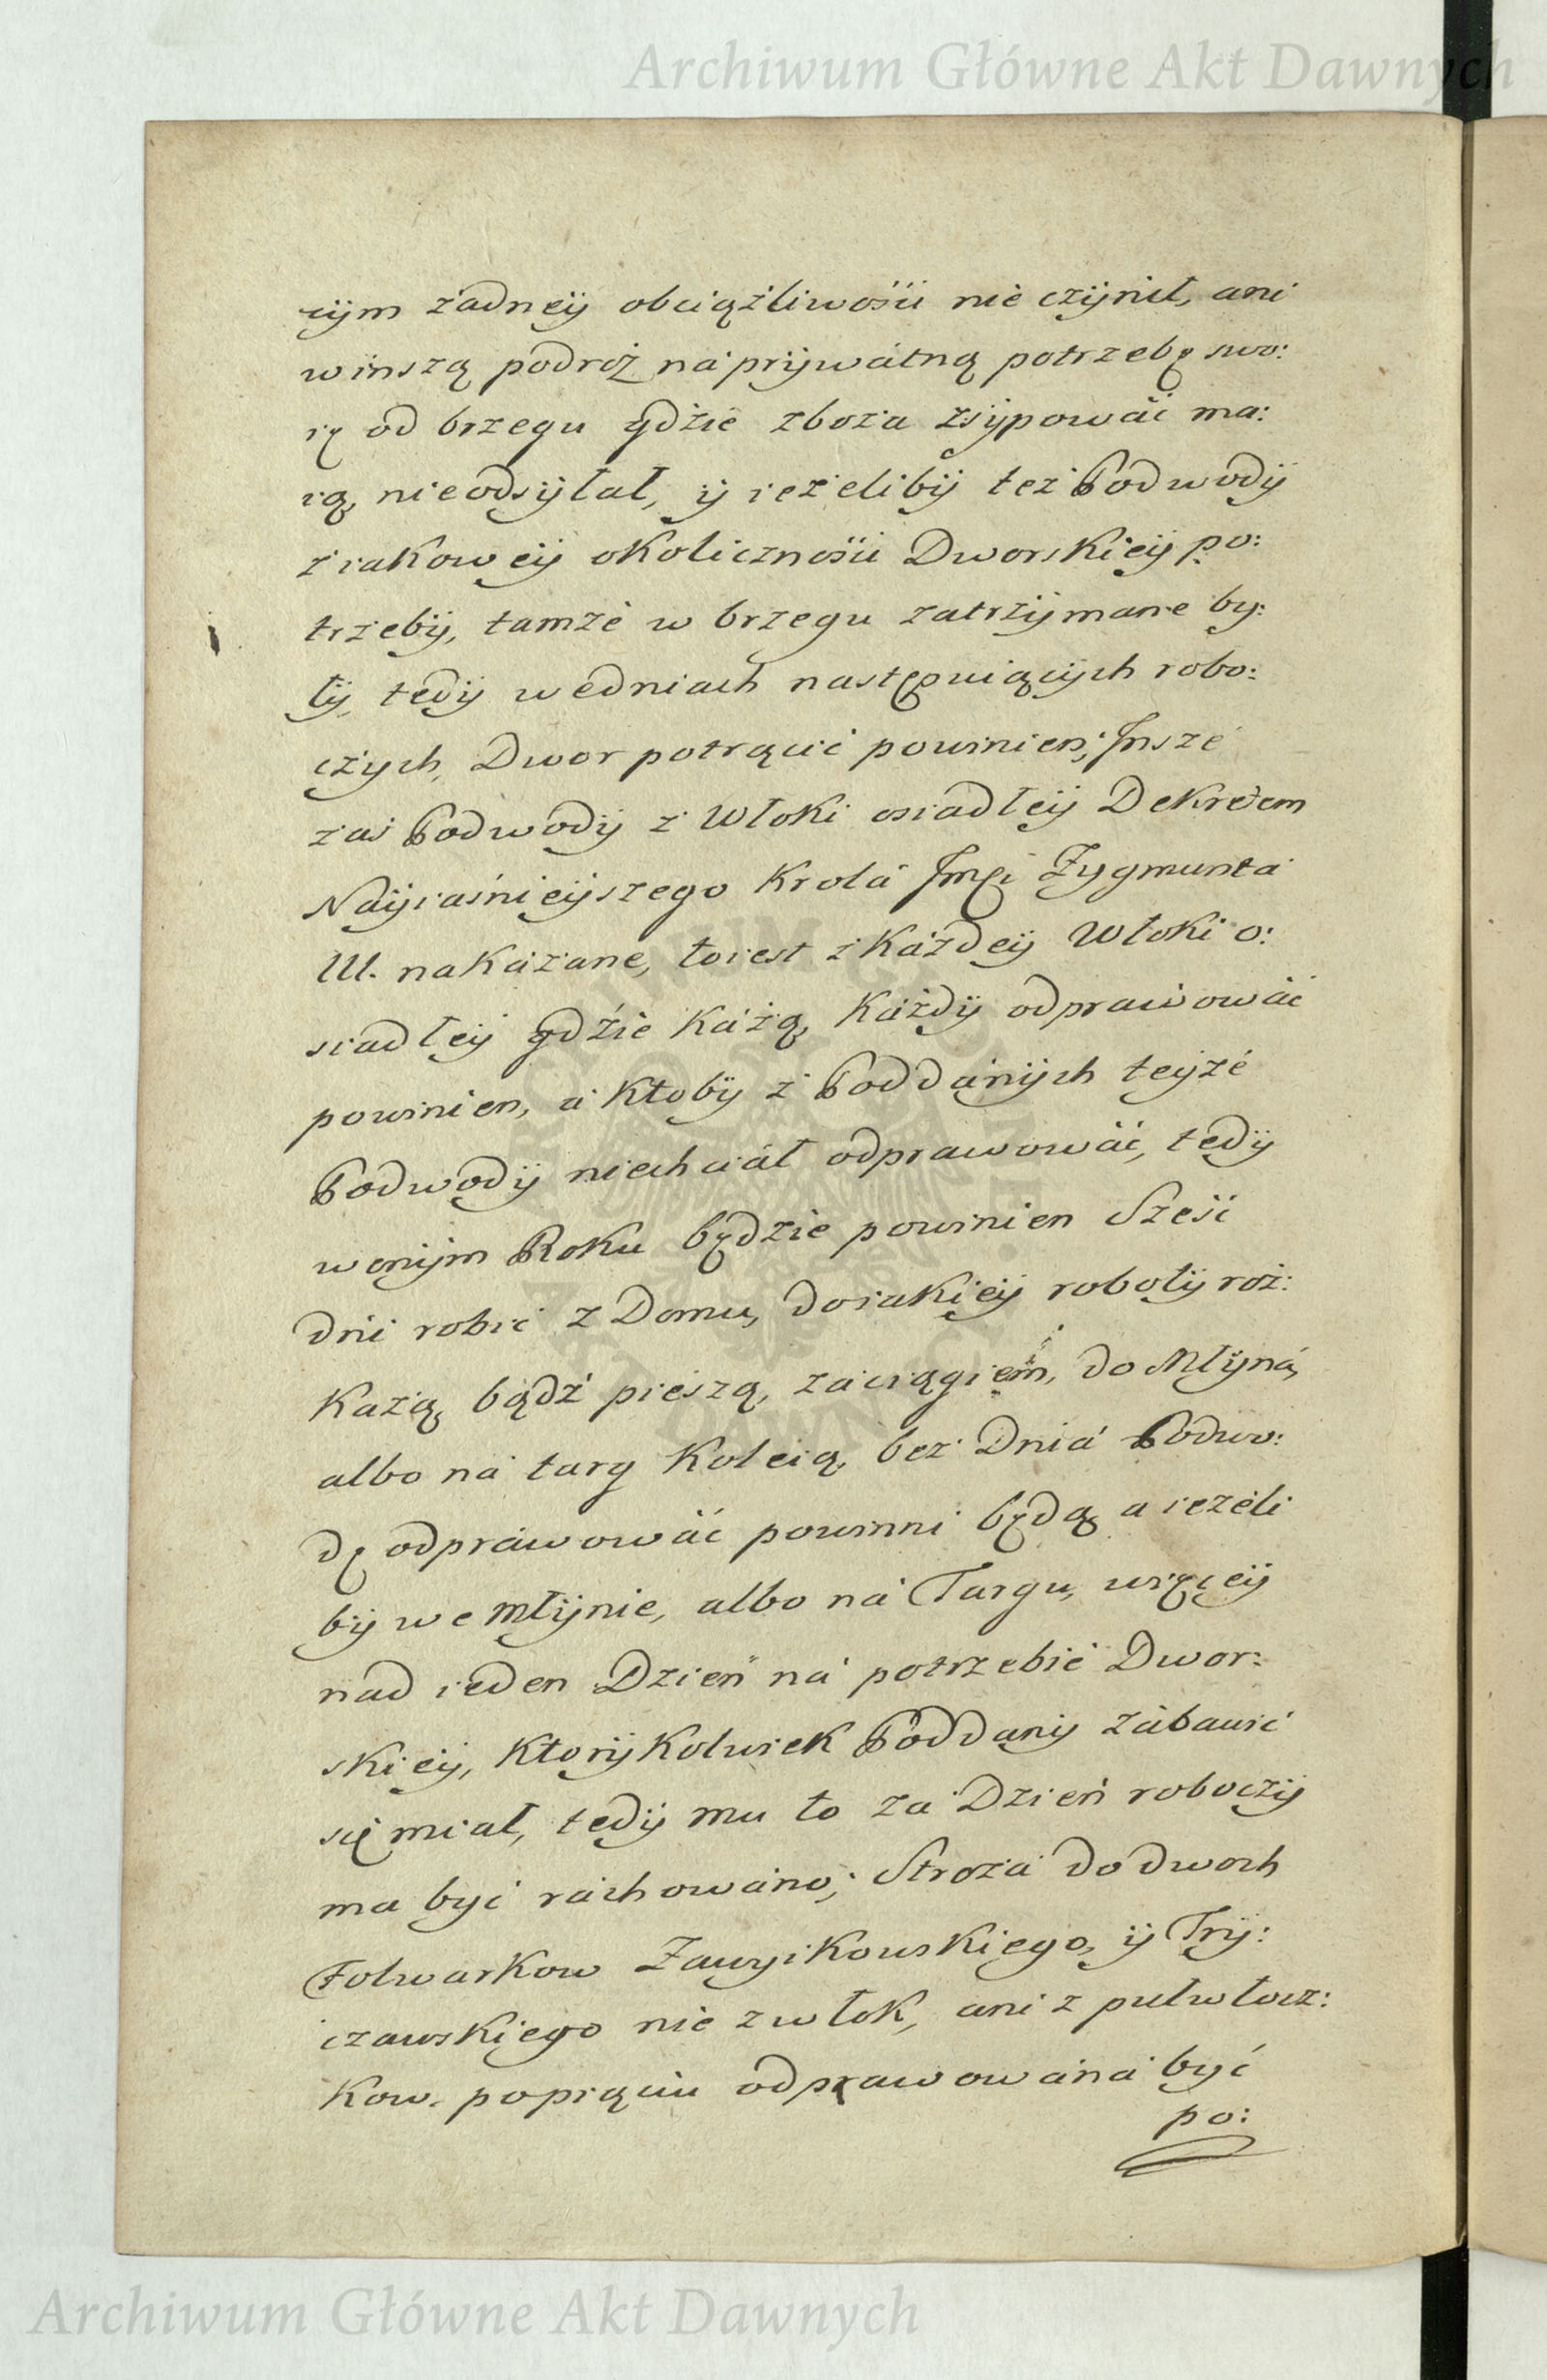 Archiwum Główne Akt Dawnych
cÿm żadneÿ obciążliwości nie czÿnił, ani
winszą podroż na prÿwatną potrzebę swo:
ię od brzegu gdzie zboża zsÿpować ma:
ią, nieodsÿłał, ÿ ieżelibÿ też Podwodÿ
z iakoweÿ okoliczności Dworskieÿ po:
trzebÿ, tamże w brzegu zatrzÿmane by:
łÿ, tedÿ wedniach następuiącÿch robo:
czÿch, Dwor potrącić powinien; Insze
zaś Podwodÿ z Włoki osiadłeÿ Dekretem
Naÿiaśnieÿszego Krola Jmci Zygmunta
III. nakazane, toiest z każdeÿ Włoki o:
siadłeÿ gdźie każą, każdÿ odprawować
powinien, a ktobÿ z Poddanÿch teÿże
Podwodÿ niechciał odprawować, tedÿ
wonÿm Roku będzie powinien Sześć
dni robić z Domu, doiakieÿ robotÿ roż:
każą, bądź pieszą, zaciągiem, do Młÿna,
albo na targ koleią, bez Dnia Podwo:
dę odprawować powinni będą, a ieżeli
bÿ we młÿnie, albo na Targu, więceÿ
nad ieden Dzień na potrzebie Dwor:
skieÿ, ktorÿkolwiek Poddanÿ zabawić
się miał, tedÿ mu to za Dzień roboczÿ
ma być rachowano; Stroża do dwoch
Folwarkow Zawyikowskiego, ÿ Trÿ:
czawskiego nie zwłok, ani z pułwłocz:
kow. popiąciu odprawowana być
po:
Archiwum Główne Akt Dawnych